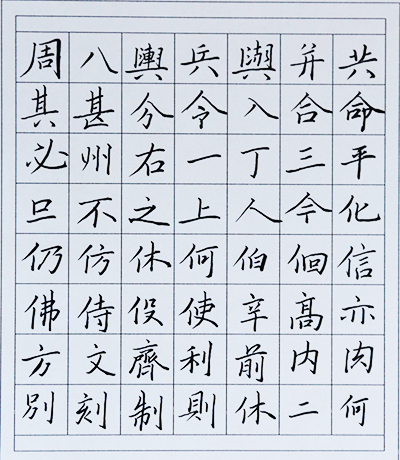 周八輿兵與并共
其甚分令入合命
必州右一丁三平
旦不之上人今化
仍仿休何伯佪信
佛侍役使辛高亦
方文齊利前內肉
別刻制則休二何